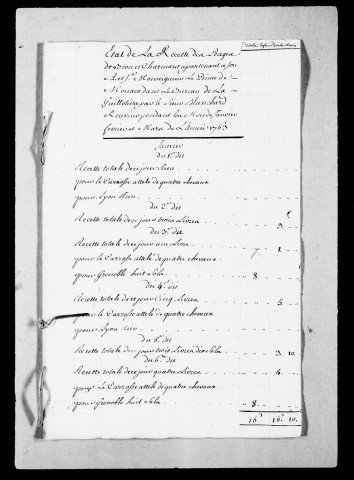 Etat de La Recette des Péages
de Bron et Charmant apartenant a Son
A. S.e Monseigneur Le Prince de
Monaco dans Le Bureau de La
Guillotiere par le Sieur Blanchard
Receveur pendant les Mois de Janvier
fevrier et Mars de L'année 1763
Janvier
du 1er dit
Recette totale de ce jour Rien
pour le Carrosse attelé de quatre chevaux
pour Lyon Rien
du 2e dit
Recette totale de ce jour trois Livres 3
du 3e dit
Recette totale de ce jour une Livre 1
pour le Carrosse attelé de quatre chevaux
pour Grenoble huit Sols 8
du 4e dit
Recette totale de ce jour Cinq Livres 5
pour le Carrosse attelé de quatre chevaux
pour Lyon Rien
du 5e dit
Recette totale de ce jour trois Livres dix Sols 3 10
du 6e dit
Recette totale de ce jour quatre Livres 4
pour Le Carrosse attelé de quatre chevaux
pour Grenoble huit Sols 8
16 16 10